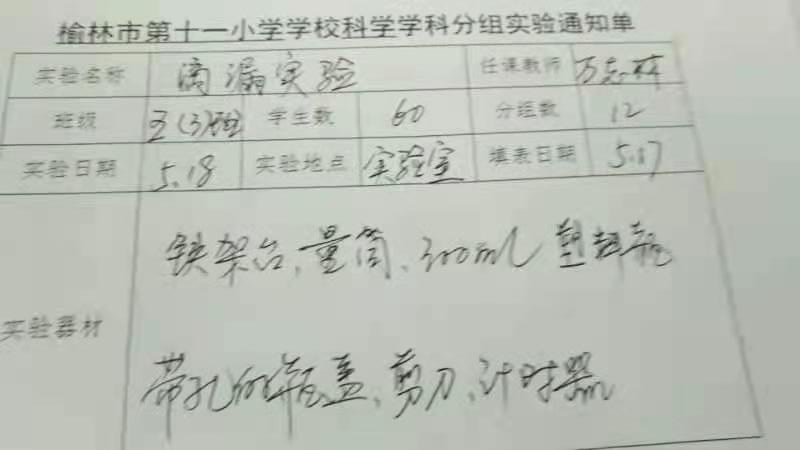 榆林市第十一小学学校科学学科分组实验通知单
实验名称 滴漏实验 任课教师
班级 五(3)班 学生数 60 分组数 12
实验日期 5.18 实验地点 实验室 填表日期 5.17
铁架台、量筒、300mL 塑料瓶
实验器材
带孔的瓶盖、剪刀、计时器